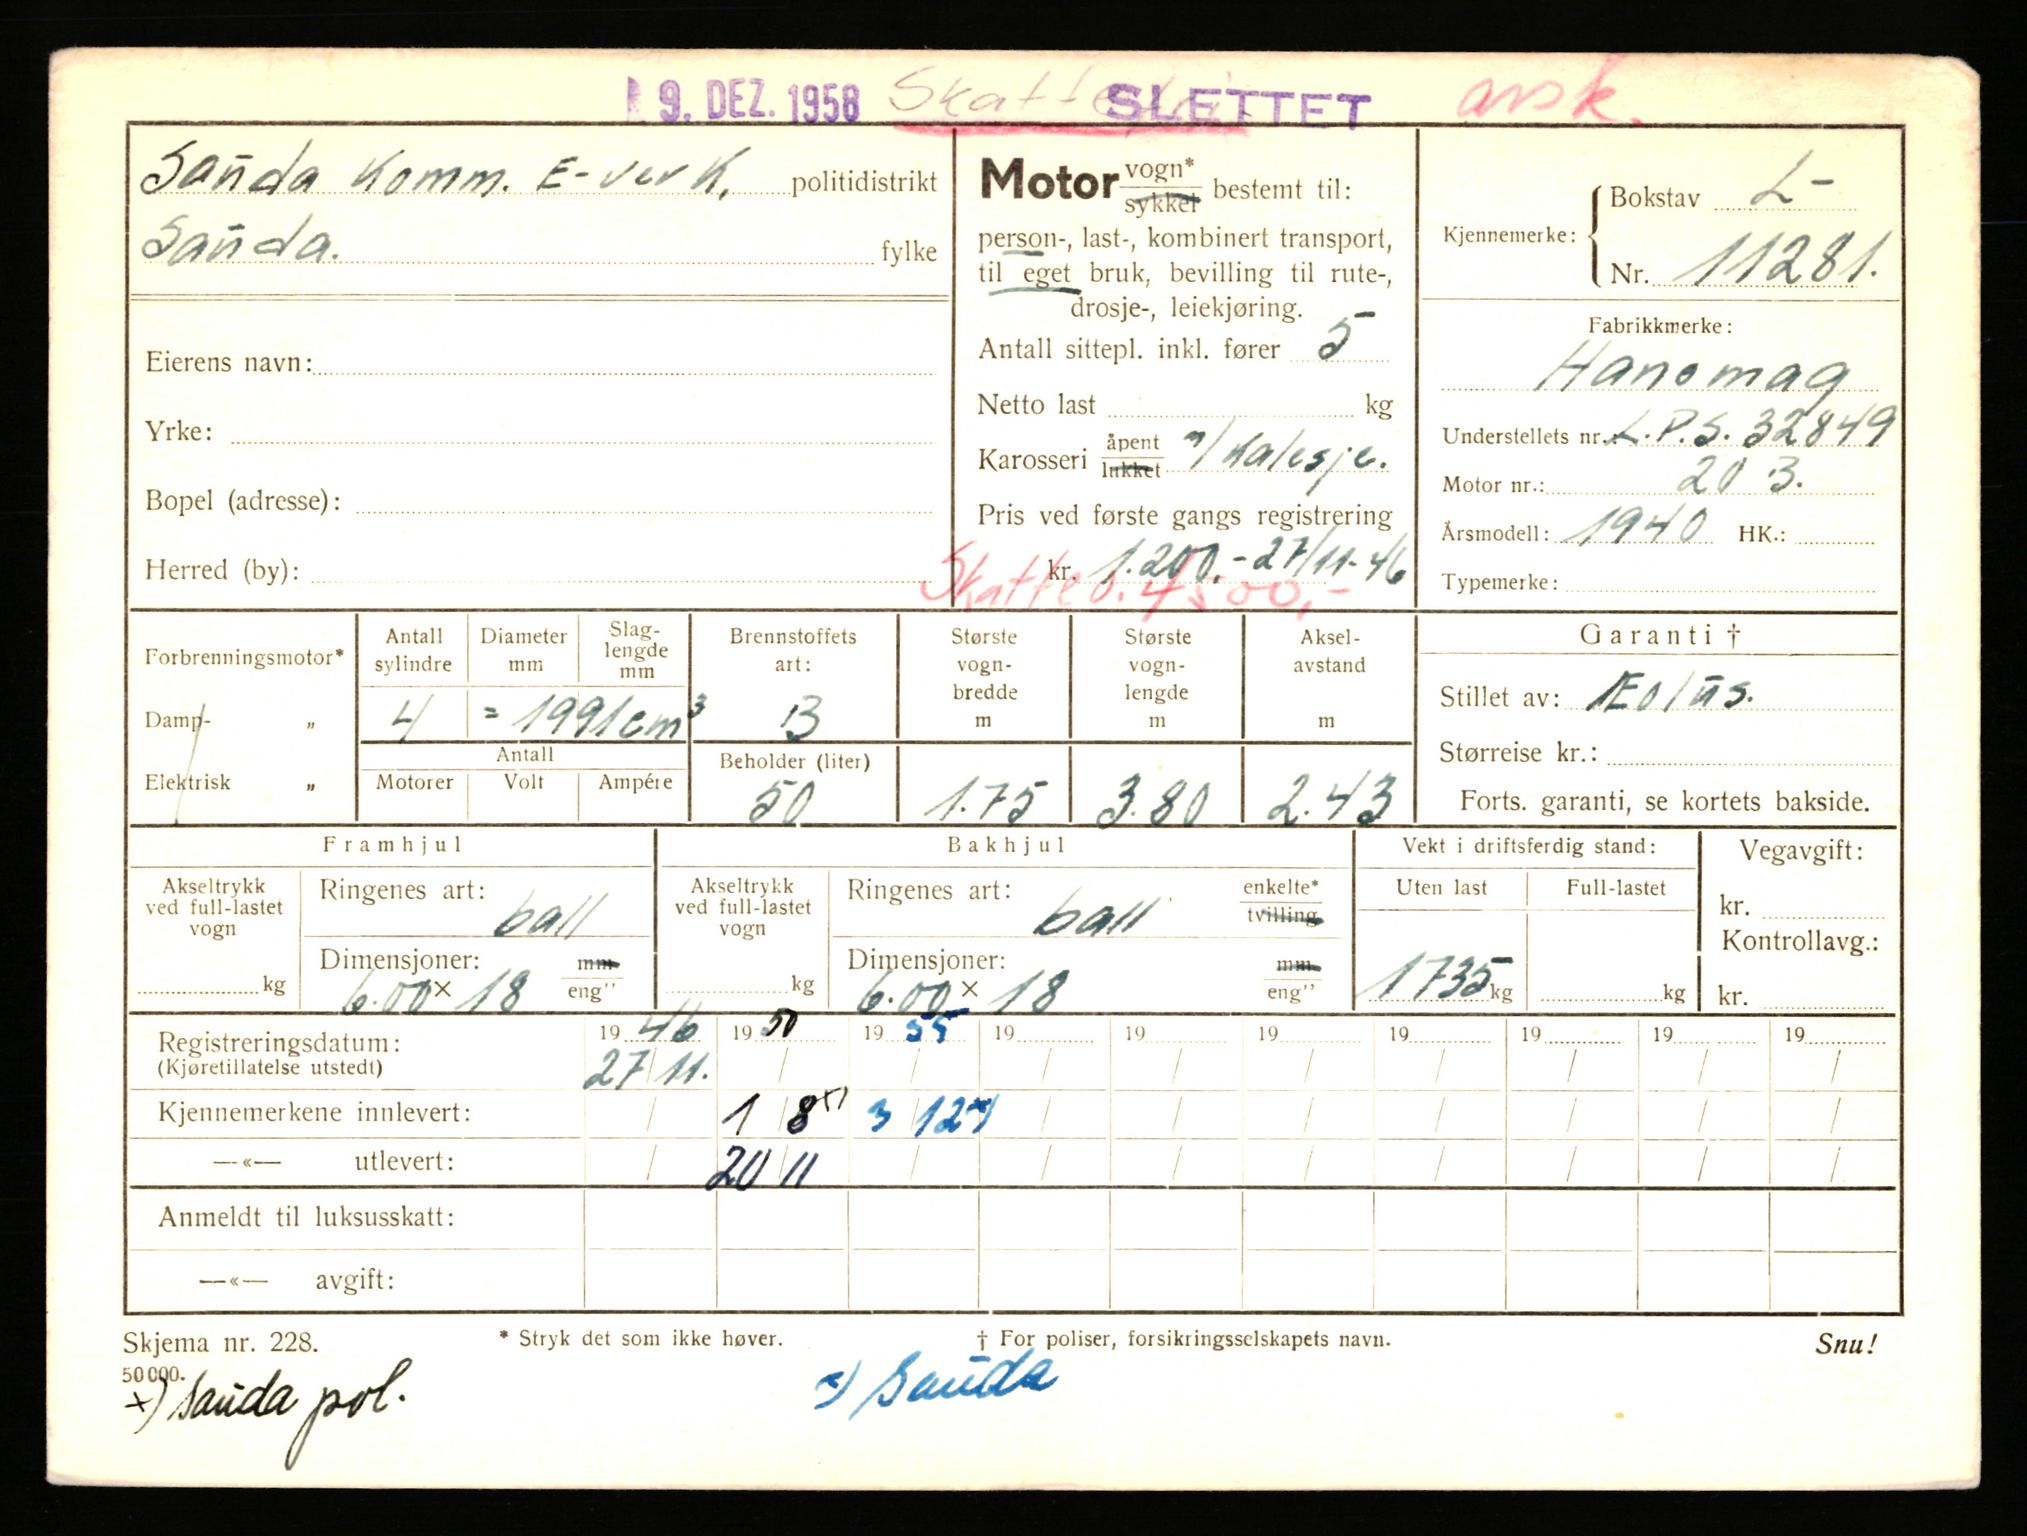 9. DEZ. 1958 Skattefri SLETTET avsk.
Sauda Komm. E-verk. politidistrikt
Sauda. fylke
Eierens navn:
Yrke:
Bopel (adresse):
Herred (by):
Motor vogn* sykkel bestemt til:
person-, last-, kombinert transport,
til eget bruk, bevilling til rute-,
drosje-, leiekjøring.
Antall sittepl. inkl. fører 5
Netto last kg
Karosseri åpent lukket m/kalesje.
Pris ved første gangs registrering
kr. 1.200.- 27/11-46
Skatteo. 4500,-
Kjennemerke: Bokstav L-
Nr. 11281.
Fabrikkmerke:
Hanomag
Understellets nr.: L.P.S. 32849
Motor nr.: 20 3.
Årsmodell: 1940 HK.:
Typemerke:
Forbrenningsmotor*
Damp- „
Elektrisk „
Antall sylindre Diameter mm Slag-lengde mm
4 = 1991 cm³
Antall
Motorer Volt Ampére
Brennstoffets art:
B
Beholder (liter)
50
Største vogn-bredde m
1.75
Største vogn-lengde m
3.80
Aksel-avstand m
2.43
Garanti †
Stillet av: Æolus.
Størreise kr.:
Forts. garanti, se kortets bakside.
Framhjul
Akseltrykk ved full-lastet vogn
kg
Ringenes art: ball
Dimensjoner: mm
6.00 × 18 eng''
Bakhjul
Akseltrykk ved full-lastet vogn
kg
Ringenes art: ball enkelte* tvilling
Dimensjoner: mm
6.00 × 18 eng''
Vekt i driftsferdig stand:
Uten last Full-lastet
1735 kg kg
Vegavgift:
kr.
Kontrollavg.:
kr.
Registreringsdatum: 19 46 19 50 19 55 19 19 19 19 19 19 19
(Kjøretillatelse utstedt) 27/11. / / / / / / / / /
Kjennemerkene innlevert: / 1/8 x) 3/12 x) / / / / / / /
—«— utlevert: / 20/11 / / / / / / / /
Anmeldt til luksusskatt:
—«— avgift:
Skjema nr. 228. * Stryk det som ikke høver. † For poliser, forsikringsselskapets navn. Snu!
50000.
x) Sauda pol. x) Sauda